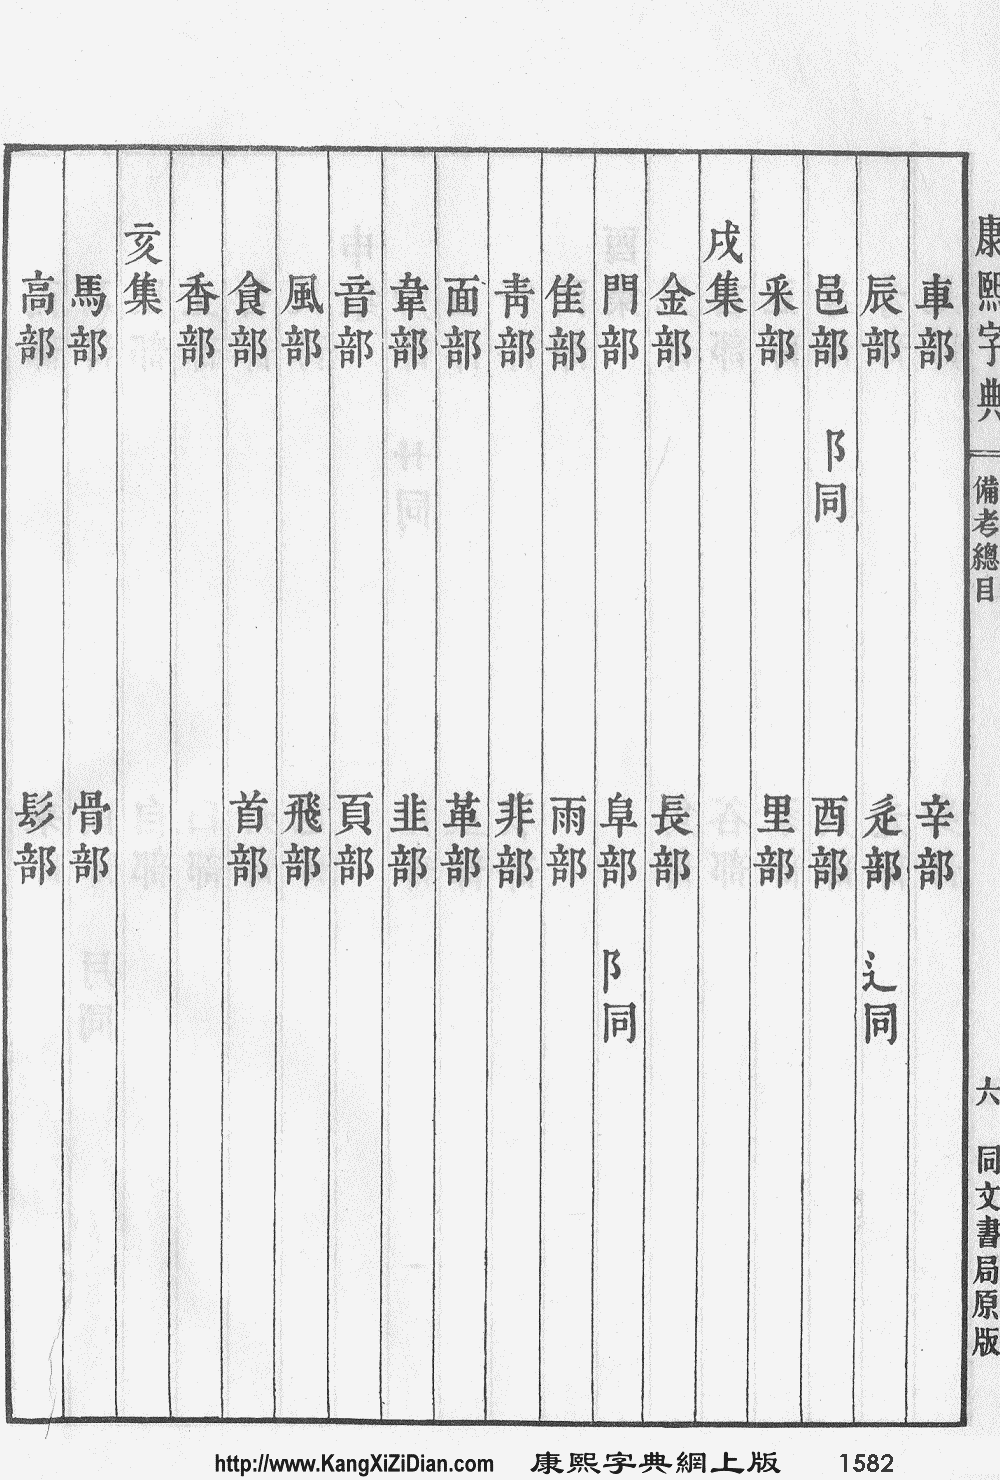 康熙字典
備考總目
六
同文書局原版
車部 辛部
辰部 辵部 辶同
邑部 阝同 酉部
釆部 里部
戌集
金部 長部
門部 阜部 阝同
隹部 雨部
靑部 非部
面部 革部
韋部 韭部
音部 頁部
風部 飛部
食部 首部
香部
亥集
馬部 骨部
高部 髟部
http://www.KangXiZiDian.com 康熙字典網上版 1582